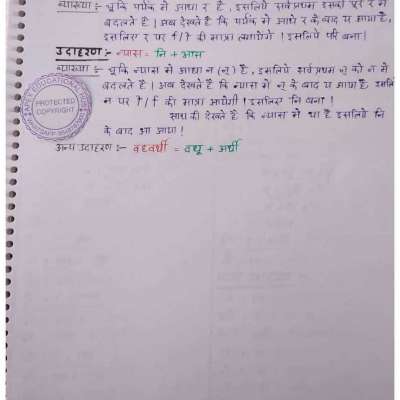 व्याख्या :- चूंकि पर्यंक में आधा र है , इसलिये सर्वप्रथम इसको पूरे र में
बदलते है । अब देखते है कि पर्यंक में आधे र के बाद य आया है,
इसलिए र पर f/ी की मात्रा लगायेंगे । इसलिये परि बना ।
उदाहरण :- न्यास = नि + आस
व्याख्या :- चूंकि न्यास में आधा न (न्) है , इसलिये सर्वप्रथम न् को न में
बदलते है । अब देखते है कि न्यास में न् के बाद य आया है इसलि
न पर ि/ी की मात्रा आयेगी । इसलिए नि बना ।
साथ ही देखते है कि न्यास में या है इसलिये नि
के बाद आ आया ।
अन्य उदाहरण :- वध्वर्थी = वधू + अर्थी
EDUCATIONAL HUB
PROTECTED
COPYRIGHT